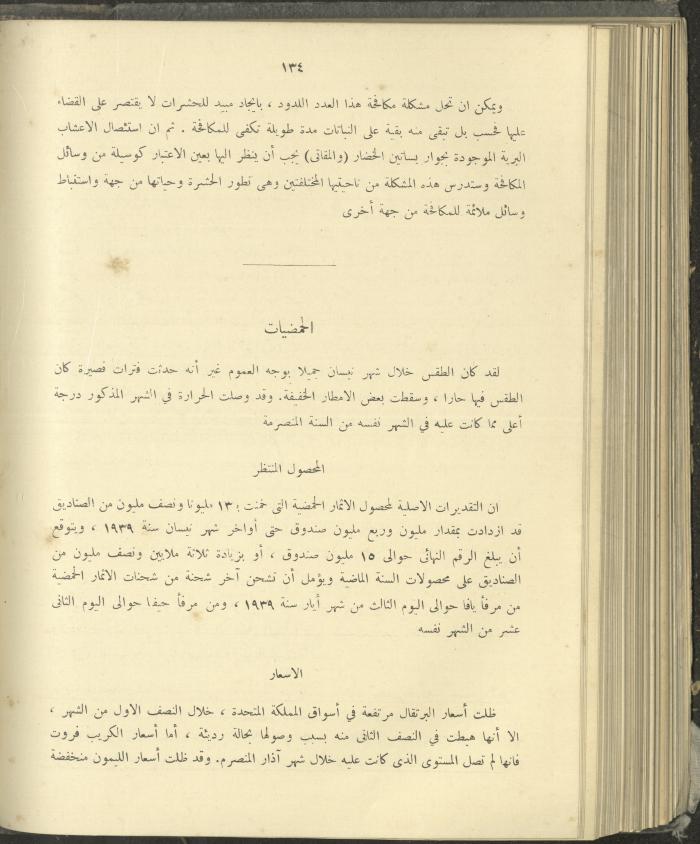 ١٣٤
ويمكن ان تحل مشكلة مكافحة هذا العدد اللدود ، بايجاد مبيد للحشرات لا يقتصر على القضاء
عليها فحسب بل تبقى منه بقية على النباتات مدة طويلة تكفى للمكافحة . ثم ان استئصال الاعشاب
البرية الموجودة بجوار بساتين الخضار (والمقاثى) يجب أن ينظر اليها بعين الاعتبار كوسيلة من وسائل
المكافحة وستدرس هذه المشكلة من ناحيتيها المختلفتين وهى تطور الحشرة وحياتها من جهة واستقباط
وسائل ملائمة للمكافحة من جهة أخرى
الحمضيات
لقد كان الطقس خلال شهر نيسان جميلا بوجه العموم غير أنه حدثت فترات قصيرة كان
الطقس فيها حارا ، وسقطت بعض الامطار الخفيفة. وقد وصلت الحرارة في الشهر المذكور درجة
أعلى مما كانت عليه في الشهر نفسه من السنة المنصرمة
المحصول المنتظر
ان التقديرات الاصلية لمحصول الاثمار الحمضية التى خمنت : ١٣ مليونا ونصف مليون من الصناديق
قد ازدادت بمقدار مليون وربع مليون صندوق حتى أواخر شهر نيسان سنة ١٩٣٩ ، ويتوقع
أن يبلغ الرقم النهائى حوالى ١٥ مليون صندوق ، أو بزيادة ثلاثة ملايين ونصف مليون من
الصناديق على محصولات السنة الماضية ويؤمل أن تشحن آخر شحنة من شحنات الاثمار الحمضية
من مرفأ يافا حوالى اليوم الثالث من شهر أيار سنة ١٩٣٩ ، ومن مرفأ حيفا حوالى اليوم الثانى
عشر من الشهر نفسه
الاسعار
ظلت أسعار البرتقال مرتفعة في أسواق المملكة المتحدة ، خلال النصف الاول من الشهر ،
الا أنها هبطت في النصف الثانى منه بسبب وصولها بحالة رديئة ، أما أسعار الكريب فروت
فانها لم تصل المستوى الذى كانت عليه خلال شهر آذار المنصرم. وقد ظلت أسعار الليمون منخفضة